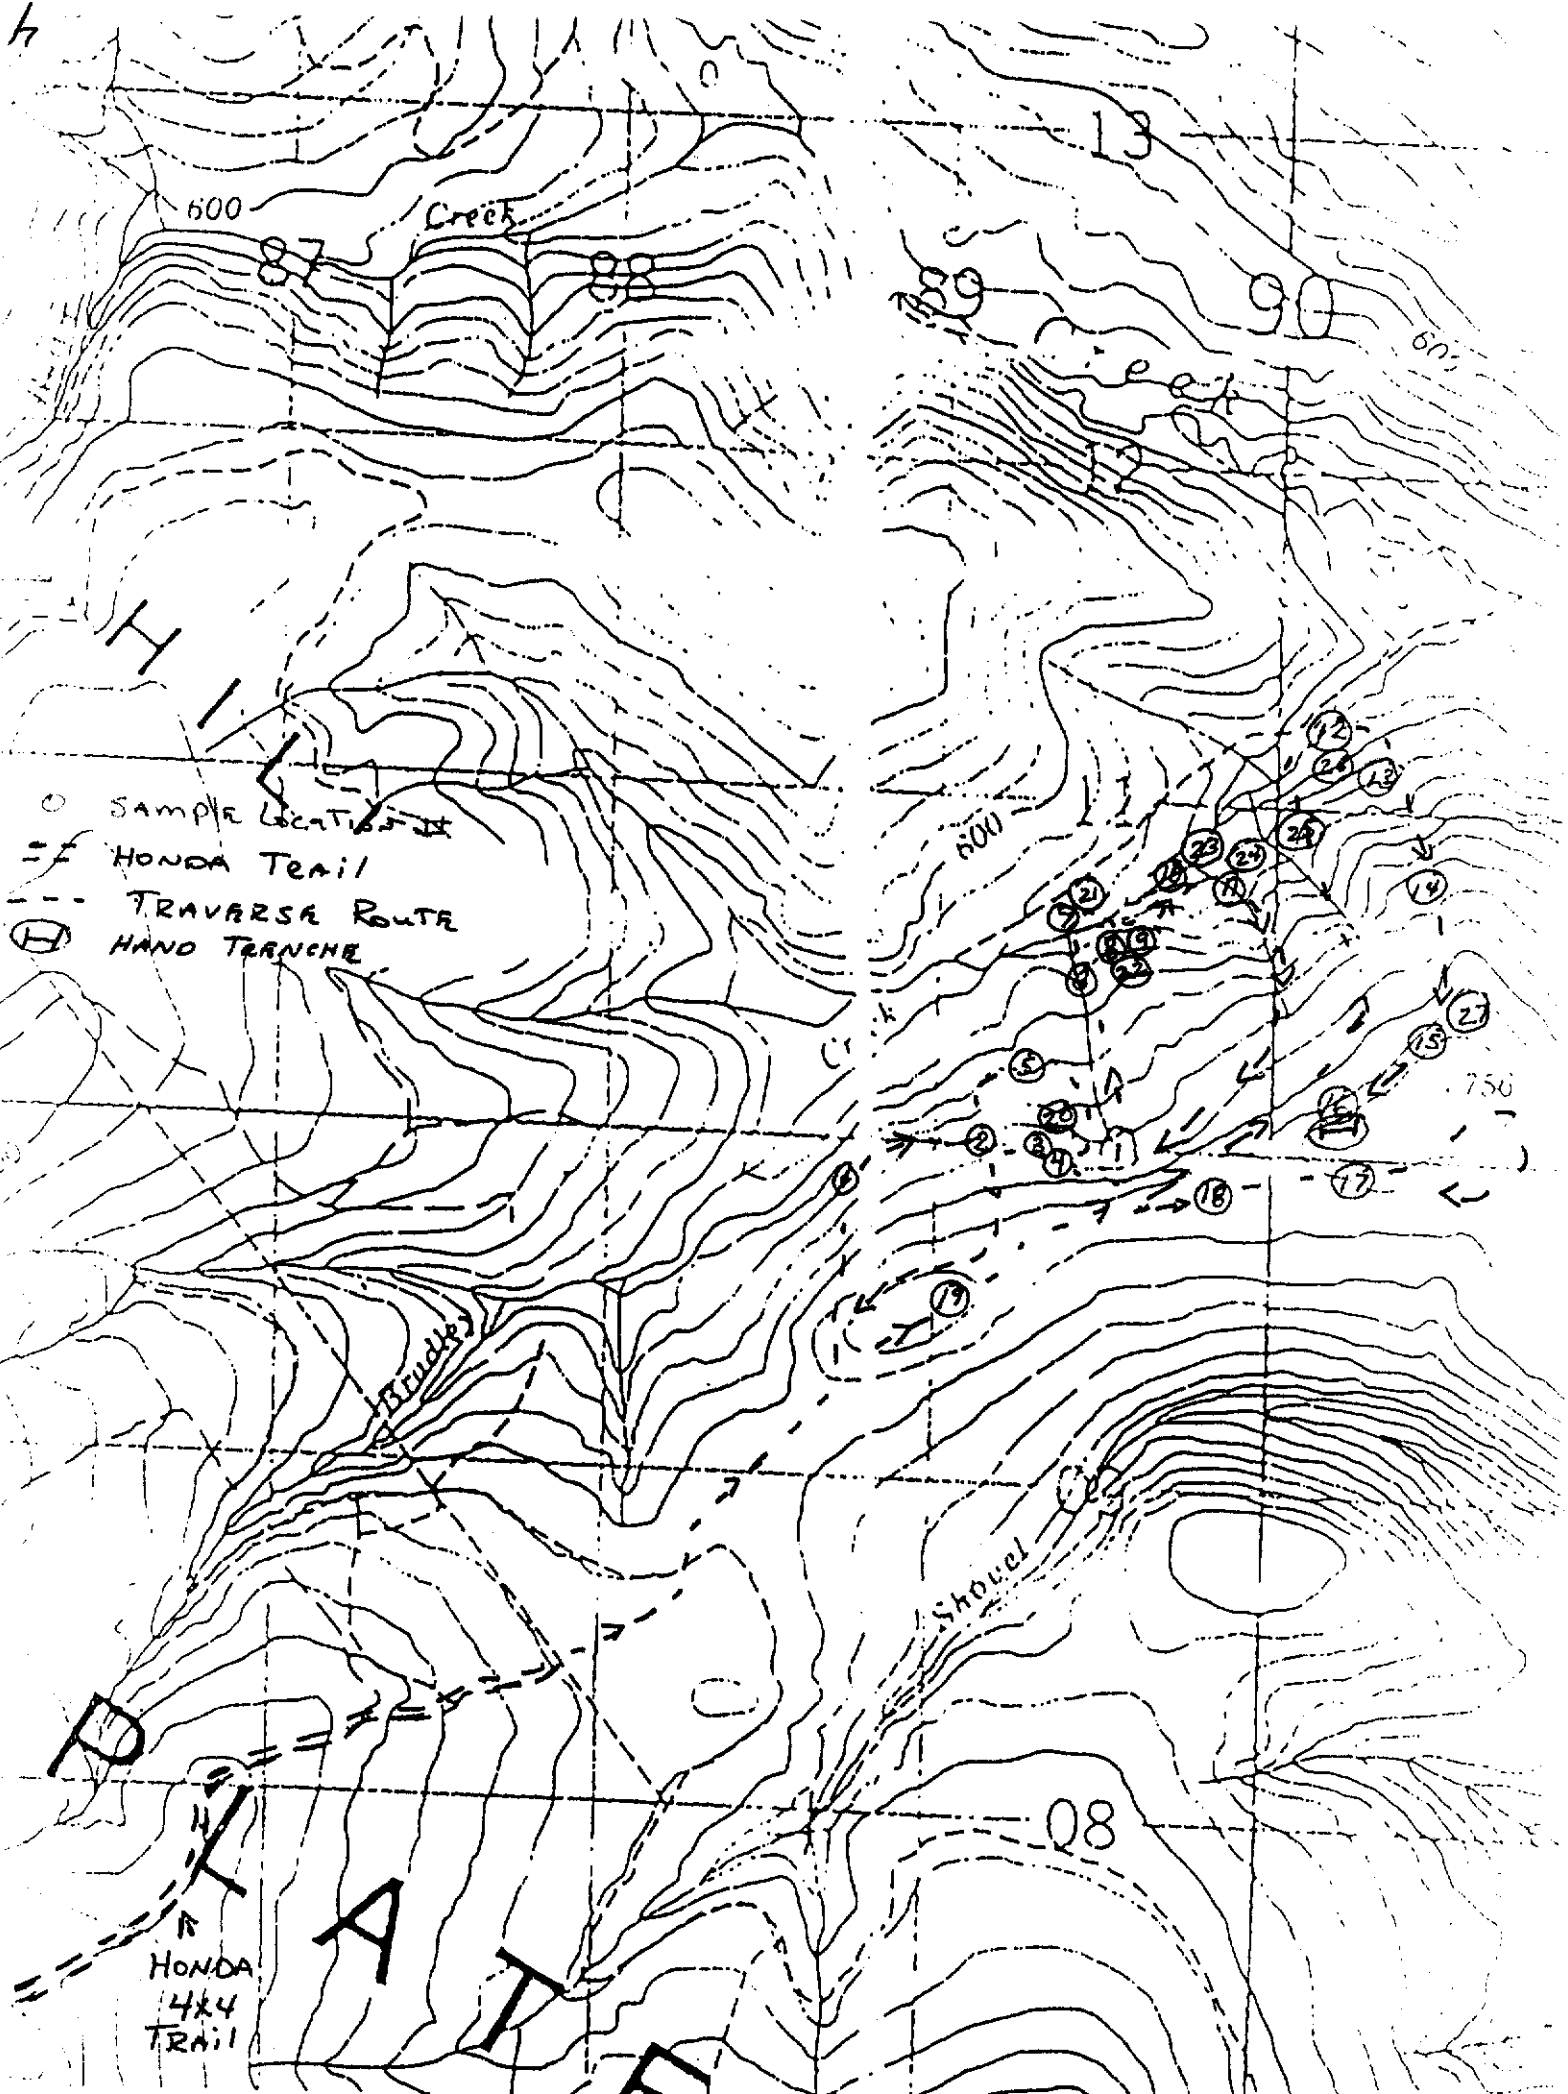 13
600
Creek
87
88
89
90
Creek
12
H
I
L
L
11
SAMPLE LOCATION
HONDA TRAIL
TRAVERSE ROUTE
H HAND TRENCHE
600
12
26
13
23
24
25
10
11
14
21
5
8
9
22
27
15
5
750
20
16
H
2
3
4
1
6
17
18
19
Brudley
09
Shovel
P
L
A
T
E
08
HONDA
4x4
TRAIL